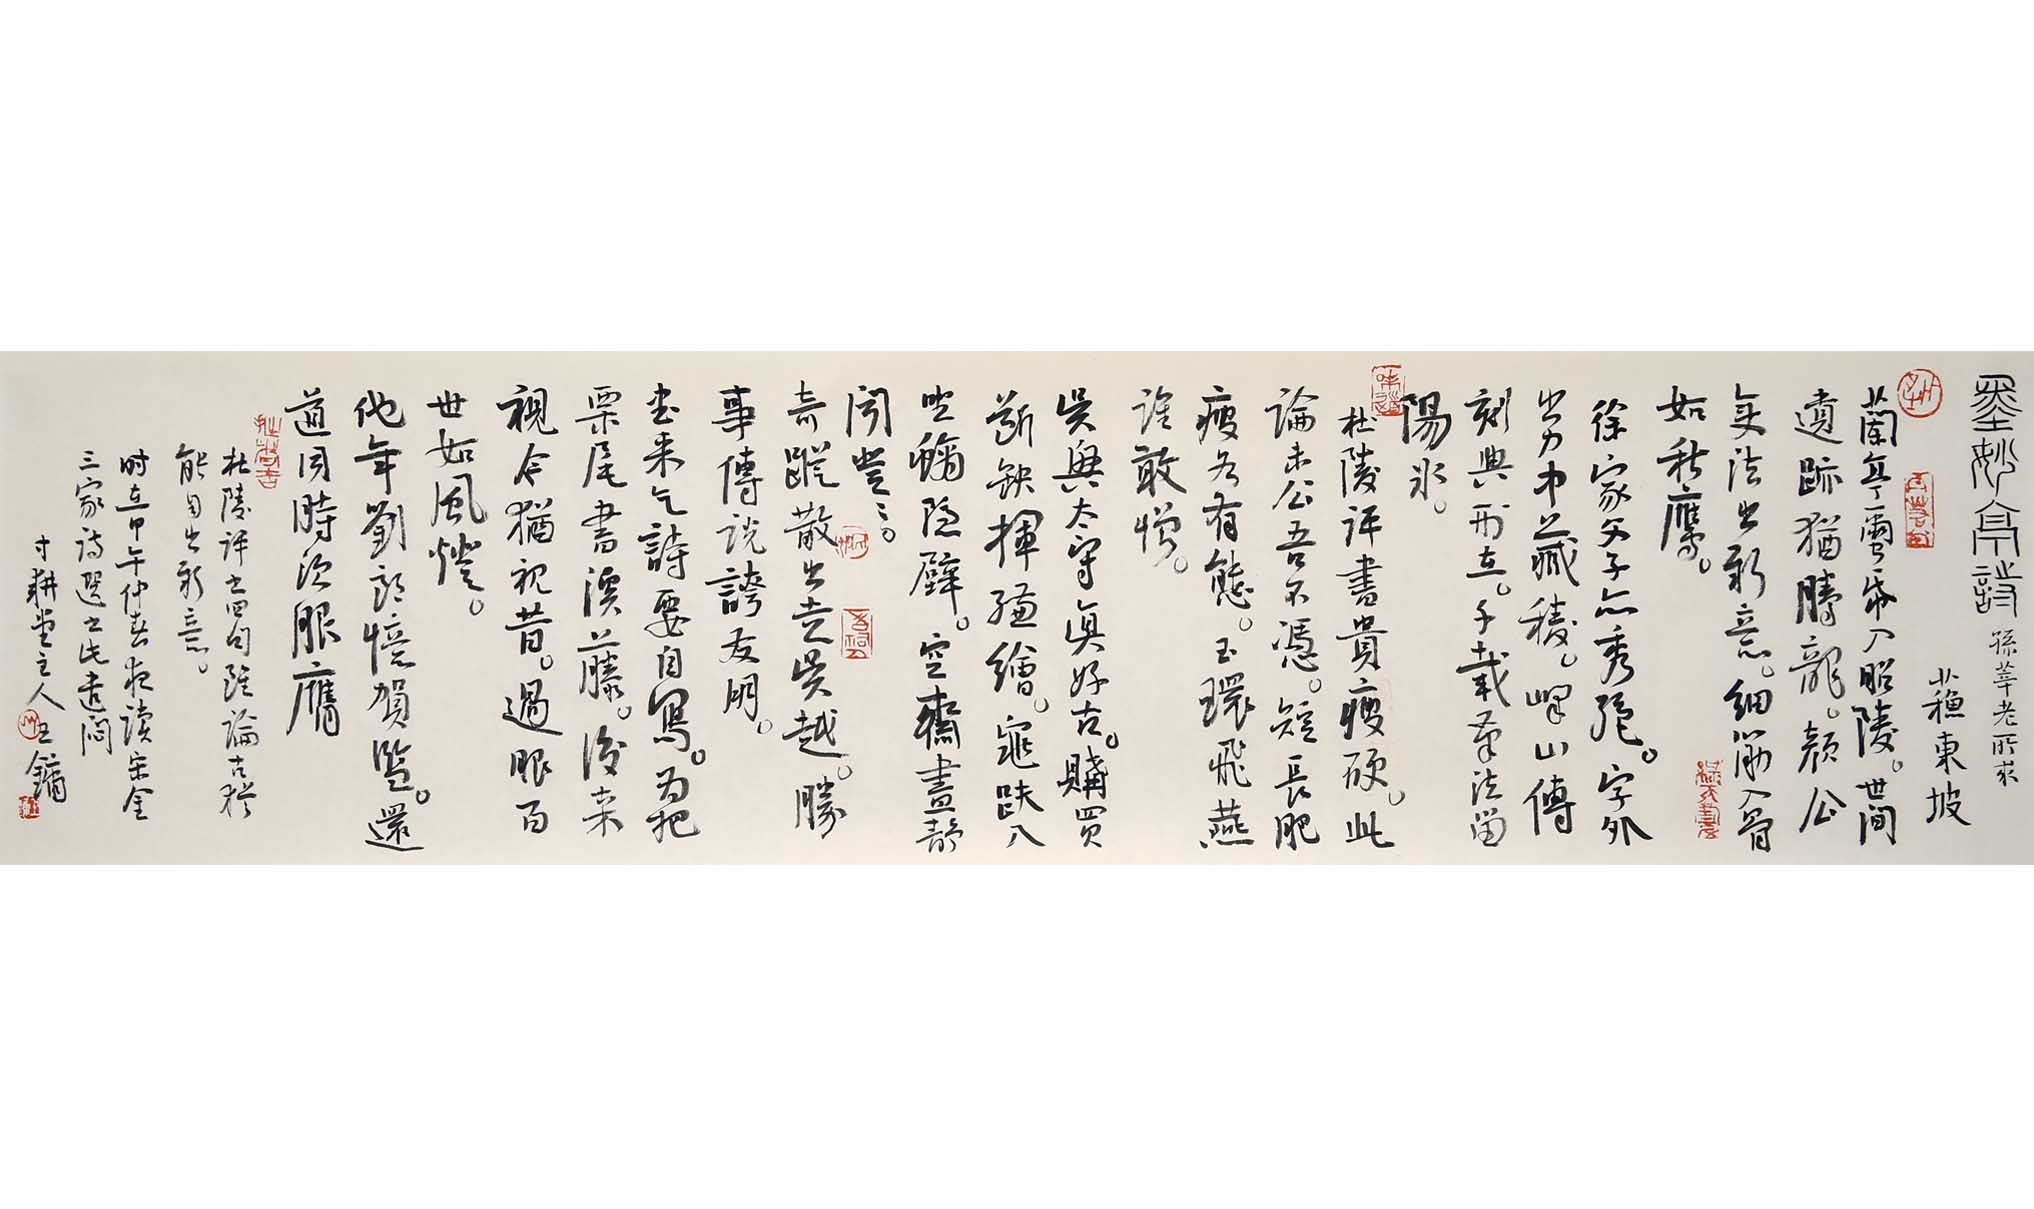 墨妙亭詩
孫莘老所求
北穐東坡
蘭亭繭帋入昭陵。世間
遺跡猶騰龍。顏公
變法出新意。細筋入骨
如秋鷹。
徐家父子亦秀絕。字外
出力中藏稜。嶧山傳
刻典形在。千載筆法留
陽冰。
杜陵評書貴瘦硬。此
論未公吾不憑。短長肥
瘦各有態。玉環飛燕
誰敢憎。
吳興太守真好古。購買
斷缺揮縑繒。龜趺入
坐螭隱壁。空齋晝靜
聞登〻。
奇蹤散出走吳越。勝
事傳說誇友朋。
書来乞詩要自寫。為把
栗尾書溪藤。後来
視今猶視昔。過眼百
世如風燈。
他年劉郎憶賀監。還
道同時須服膺
杜陵評書四句雖論古猶
能自出新意。
时在甲午仲春夜读宋金
三家詩選書此遣悶
寸耕堂主人王鏞